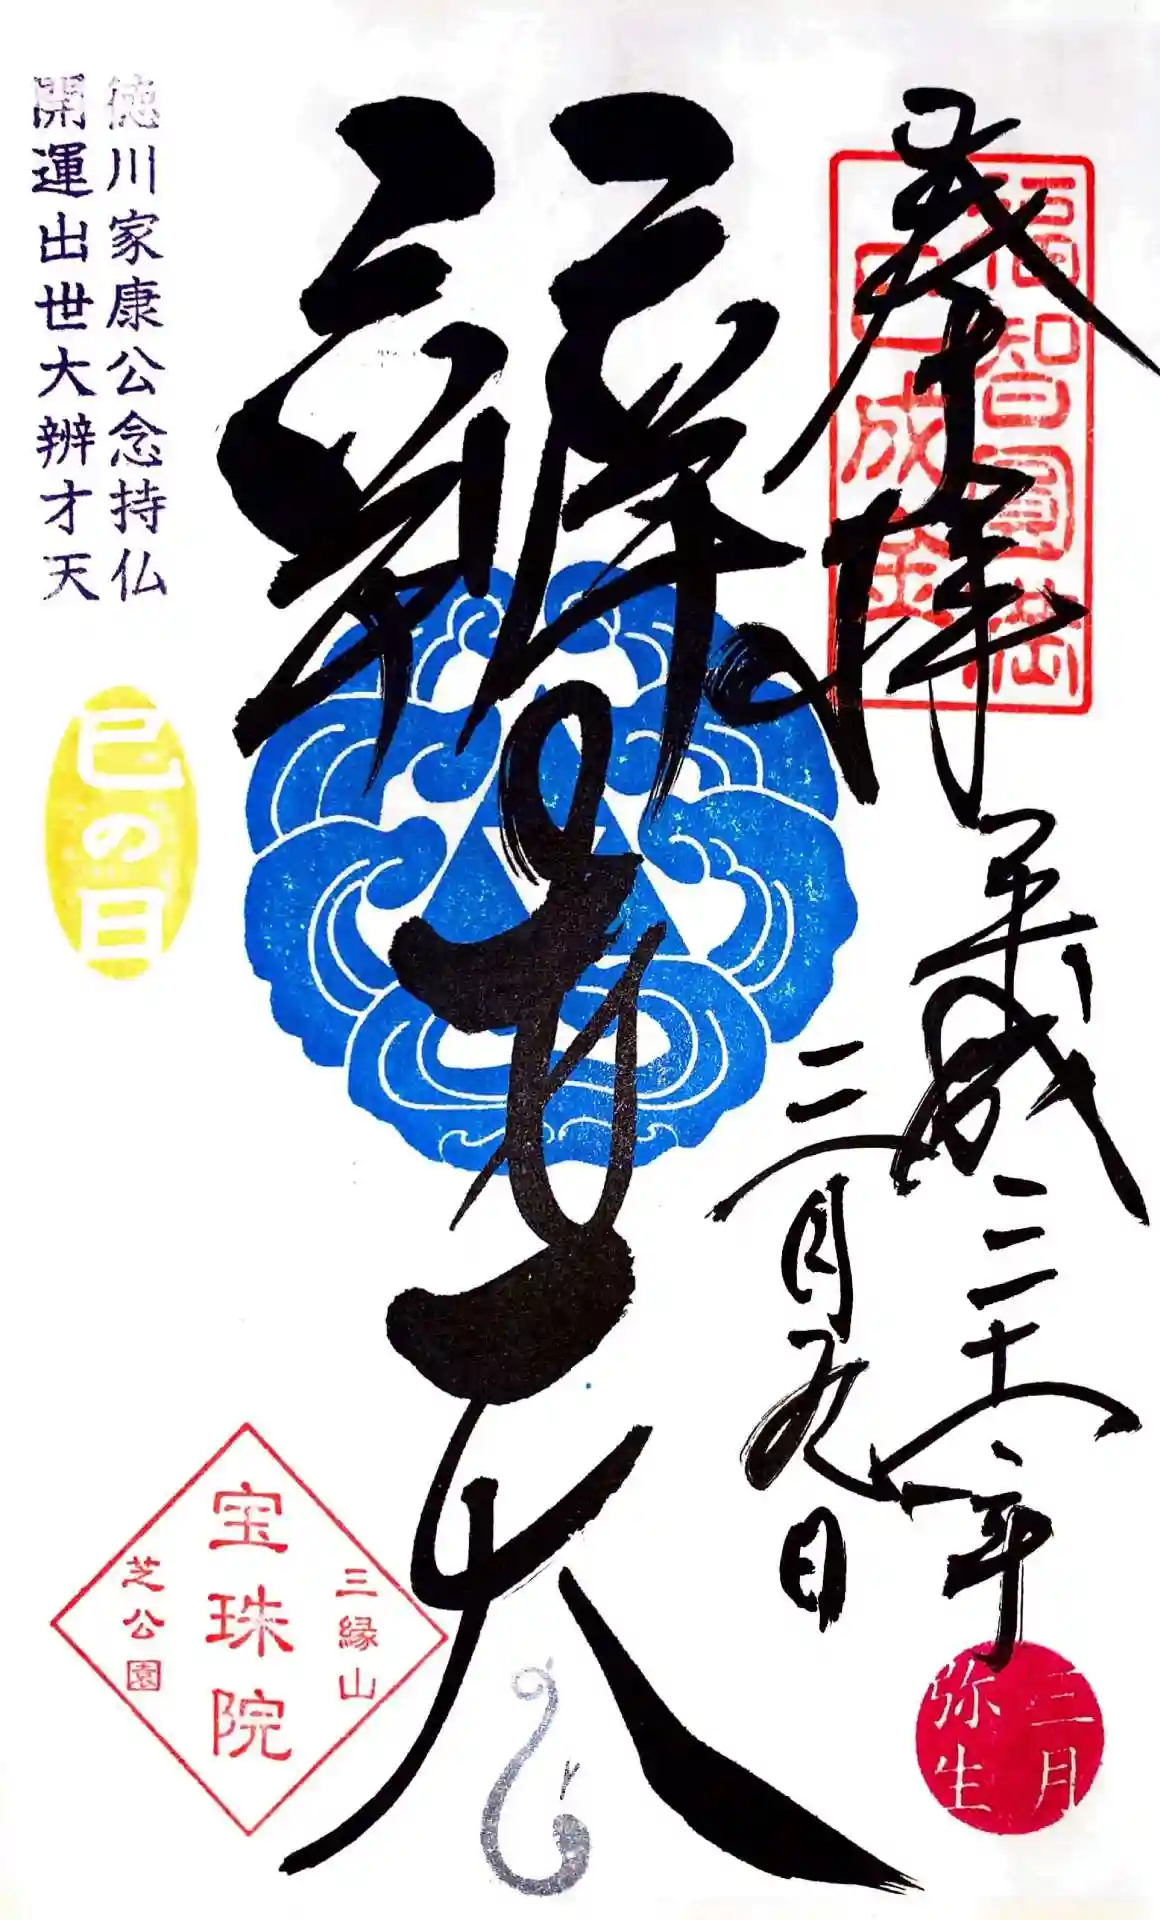 奉拝
福智圓満
巳成金
平成三十一年
三月九日
三月
弥生
辨才天
徳川家康公念持仏
開運出世大辨才天
巳の日
三縁山
宝珠院
芝公園